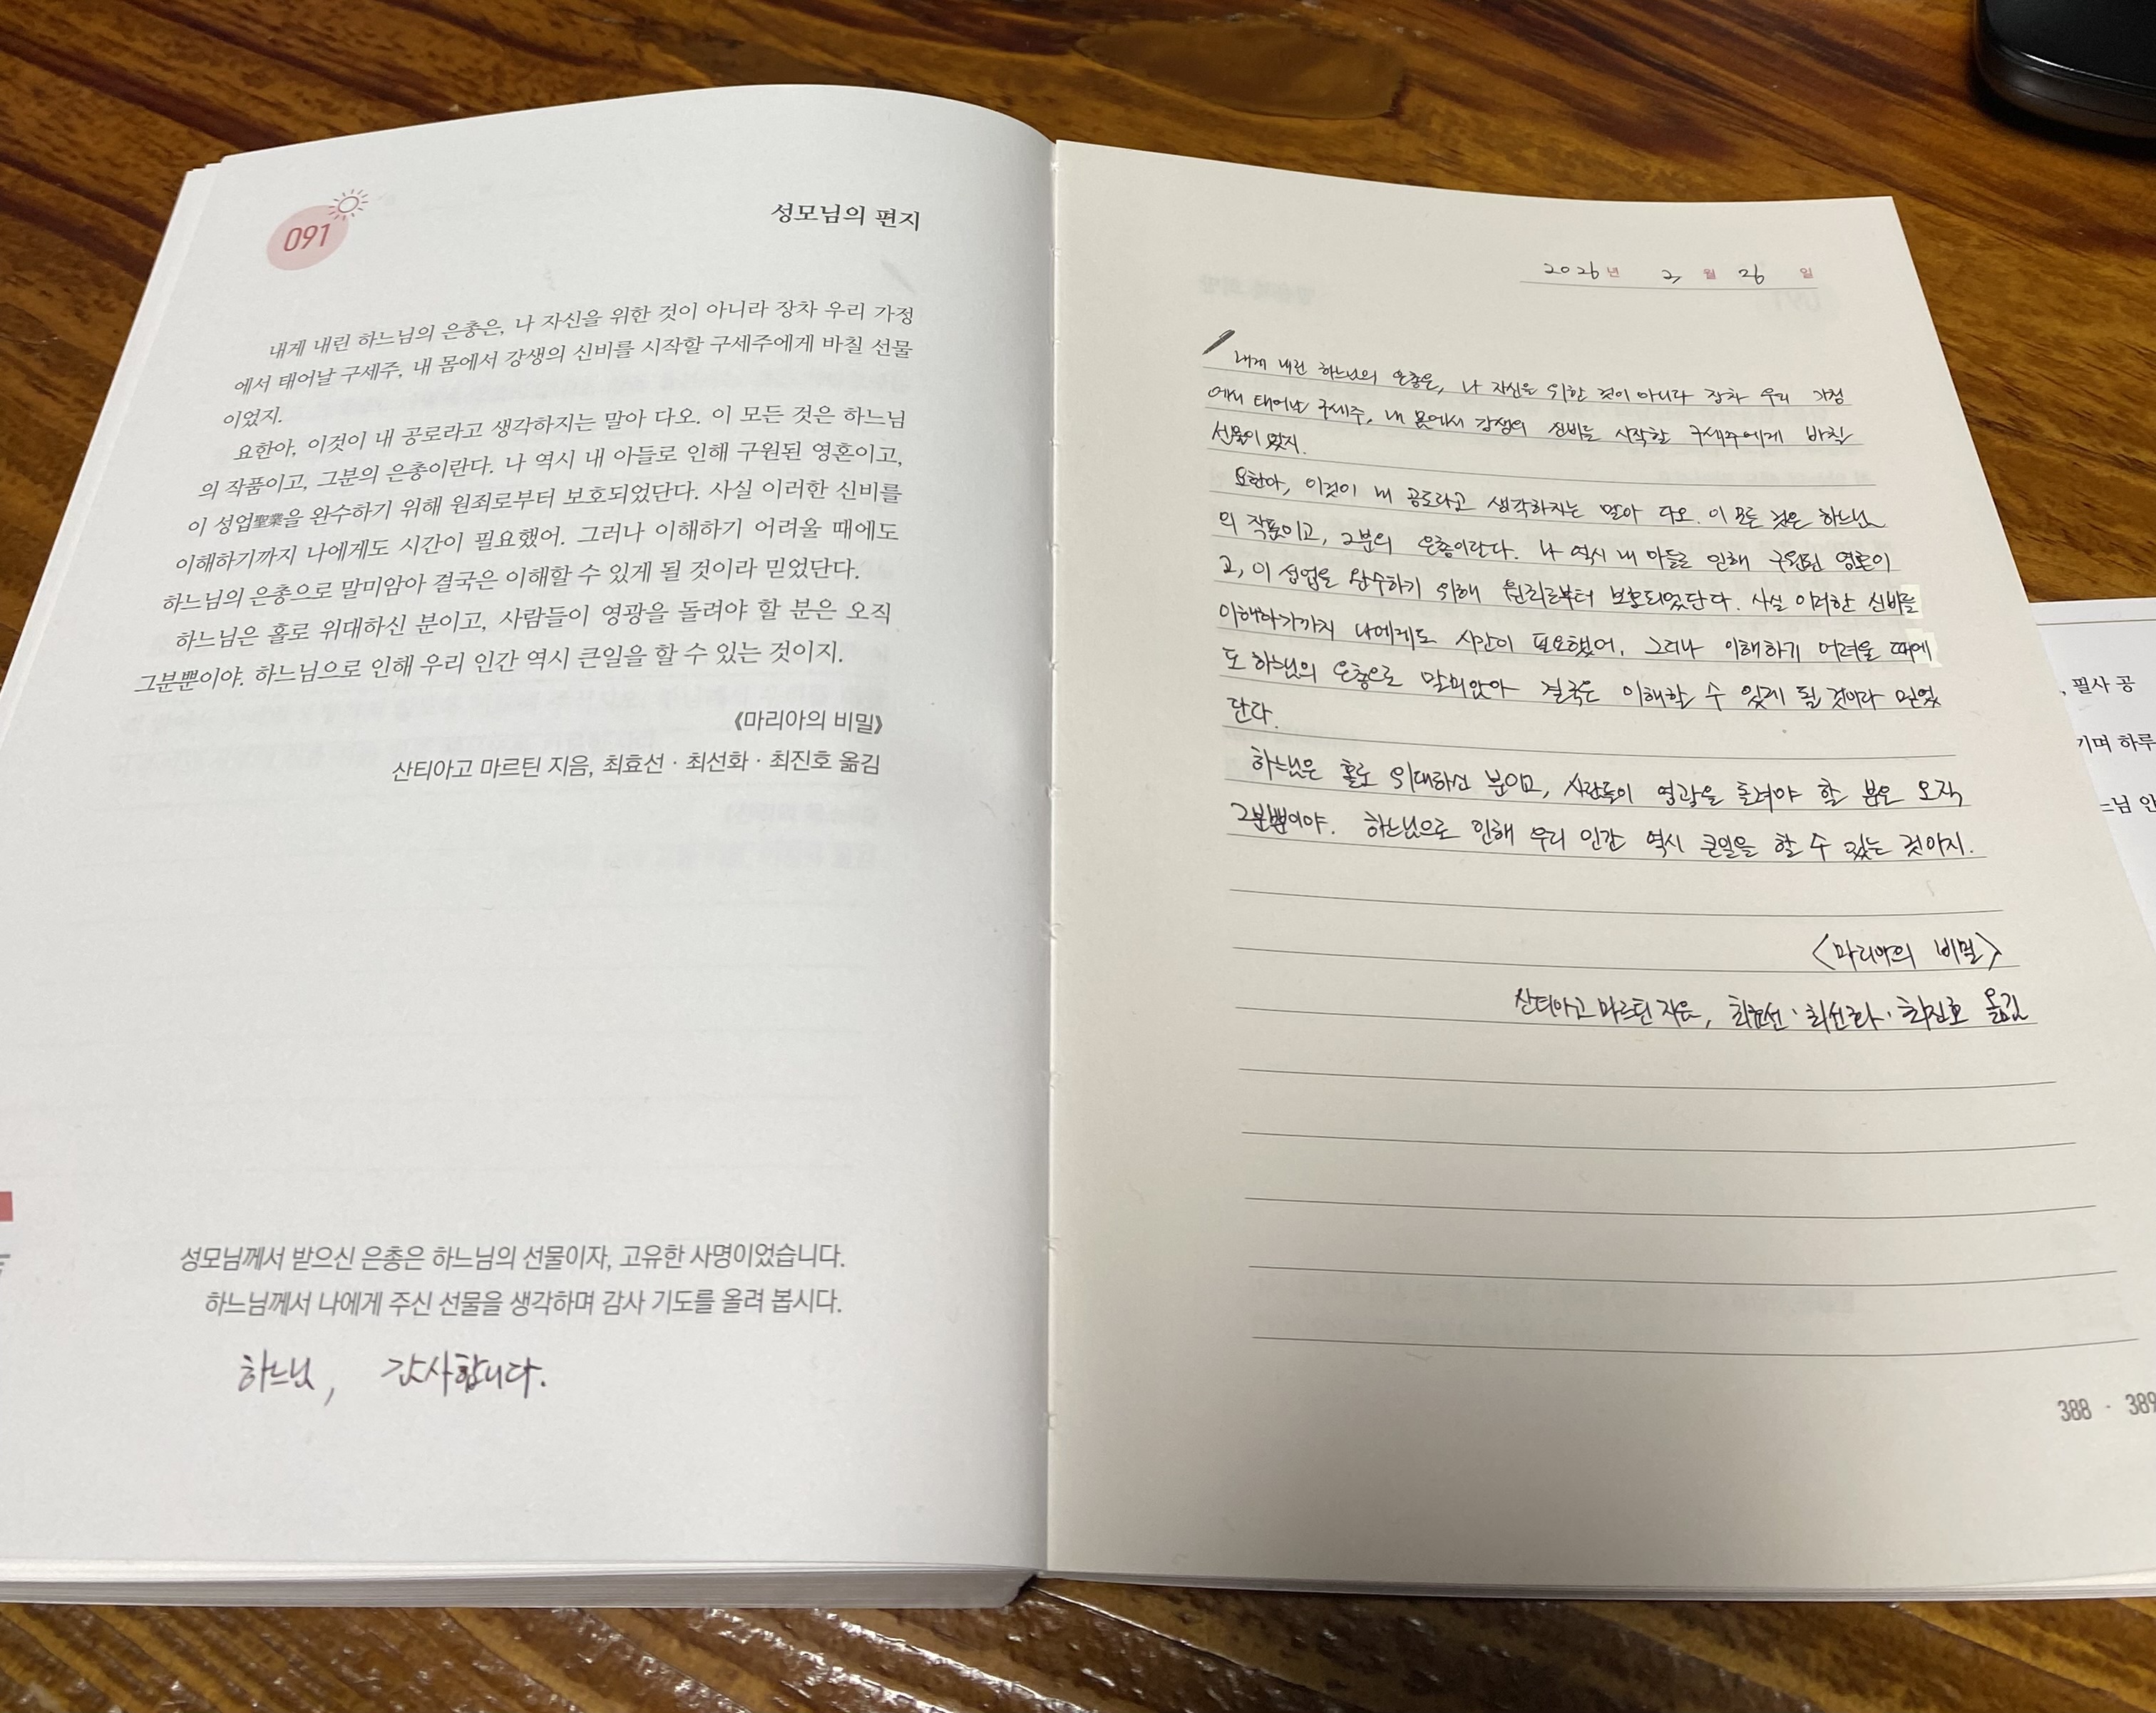 091
성모님의 편지
내게 내린 하느님의 은총은, 나 자신을 위한 것이 아니라 장차 우리 가정
에서 태어날 구세주, 내 몸에서 강생의 신비를 시작할 구세주에게 바칠 선물
이었지.
요한아, 이것이 내 공로라고 생각하지는 말아 다오. 이 모든 것은 하느님
의 작품이고, 그분의 은총이란다. 나 역시 내 아들로 인해 구원된 영혼이고,
이 성업聖業을 완수하기 위해 원죄로부터 보호되었단다. 사실 이러한 신비를
이해하기까지 나에게도 시간이 필요했어. 그러나 이해하기 어려울 때에도
하느님의 은총으로 말미암아 결국은 이해할 수 있게 될 것이라 믿었단다.
하느님은 홀로 위대하신 분이고, 사람들이 영광을 돌려야 할 분은 오직
그분뿐이야. 하느님으로 인해 우리 인간 역시 큰일을 할 수 있는 것이지.
《마리아의 비밀》
산티아고 마르틴 지음, 최효선 · 최선화 · 최진호 옮김
성모님께서 받으신 은총은 하느님의 선물이자, 고유한 사명이었습니다.
하느님께서 나에게 주신 선물을 생각하며 감사 기도를 올려 봅시다.
하느님, 감사합니다.
2026년 2월 26일
내게 내린 하느님의 은총은, 나 자신을 위한 것이 아니라 장차 우리 가정
에서 태어날 구세주, 내 몸에서 강생의 신비를 시작할 구세주에게 바칠
선물이었지.
요한아, 이것이 내 공로라고 생각하지는 말아 다오. 이 모든 것은 하느님
의 작품이고, 그분의 은총이란다. 나 역시 내 아들로 인해 구원된 영혼이
고, 이 성업을 완수하기 위해 원죄로부터 보호되었단다. 사실 이러한 신비를
이해하기까지 나에게도 시간이 필요했어. 그러나 이해하기 어려울 때에
도 하느님의 은총으로 말미암아 결국은 이해할 수 있게 될 것이라 믿었
단다.
하느님은 홀로 위대하신 분이고, 사람들이 영광을 돌려야 할 분은 오직
그분뿐이야. 하느님으로 인해 우리 인간 역시 큰일을 할 수 있는 것이지.
<마리아의 비밀>
산티아고 마르틴 지음, 최효선 · 최선화 · 최진호 옮김
388 · 389
, 필사 공
기며 하루
느님 안